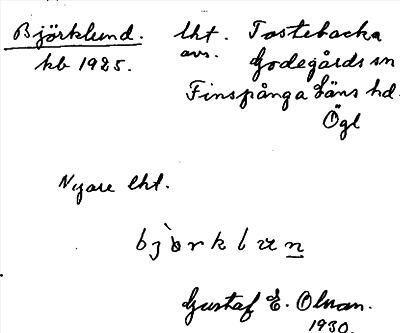 Björklund. lht. Tostebacka
kb 1925. avs. Godegårds sn
Finspånga Läns hd.
Ögl
Nyare lht.
bjò̈rklun
Gustaf E. Olman.
1930.